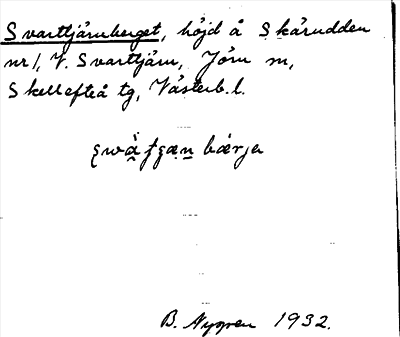 Svarttjärnberget, höjd å Skärudden
nr 1, V. Svarttjärn, Jörn sn,
Skellefteå tg, Västerb. l.
B. Nygren 1932.